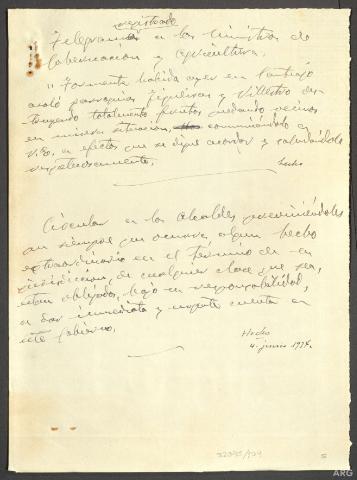 registrado
Telegrama a los Ministros de
Gobernación y Agricultura.
"Tormenta habida ayer en Santiago
asoló parroquias Figueiras y Villestro des-
truyendo totalmente frutos quedando vecinos
en mísera situación, comunicándolo a
V.E. a efectos que se digne acordar y saludándole
respetuosamente.
Hecho
Circular a los Alcaldes previniéndoles
que siempre que ocurra algun hecho
extraordinario en el término de su
jurisdicción, de cualquier clase que sea,
estan obligados, bajo su responsabilidad,
a dar inmediata y urgente cuenta a
este gobierno.
Hecho
4. junio 1934.
32095/A24
5
ARG